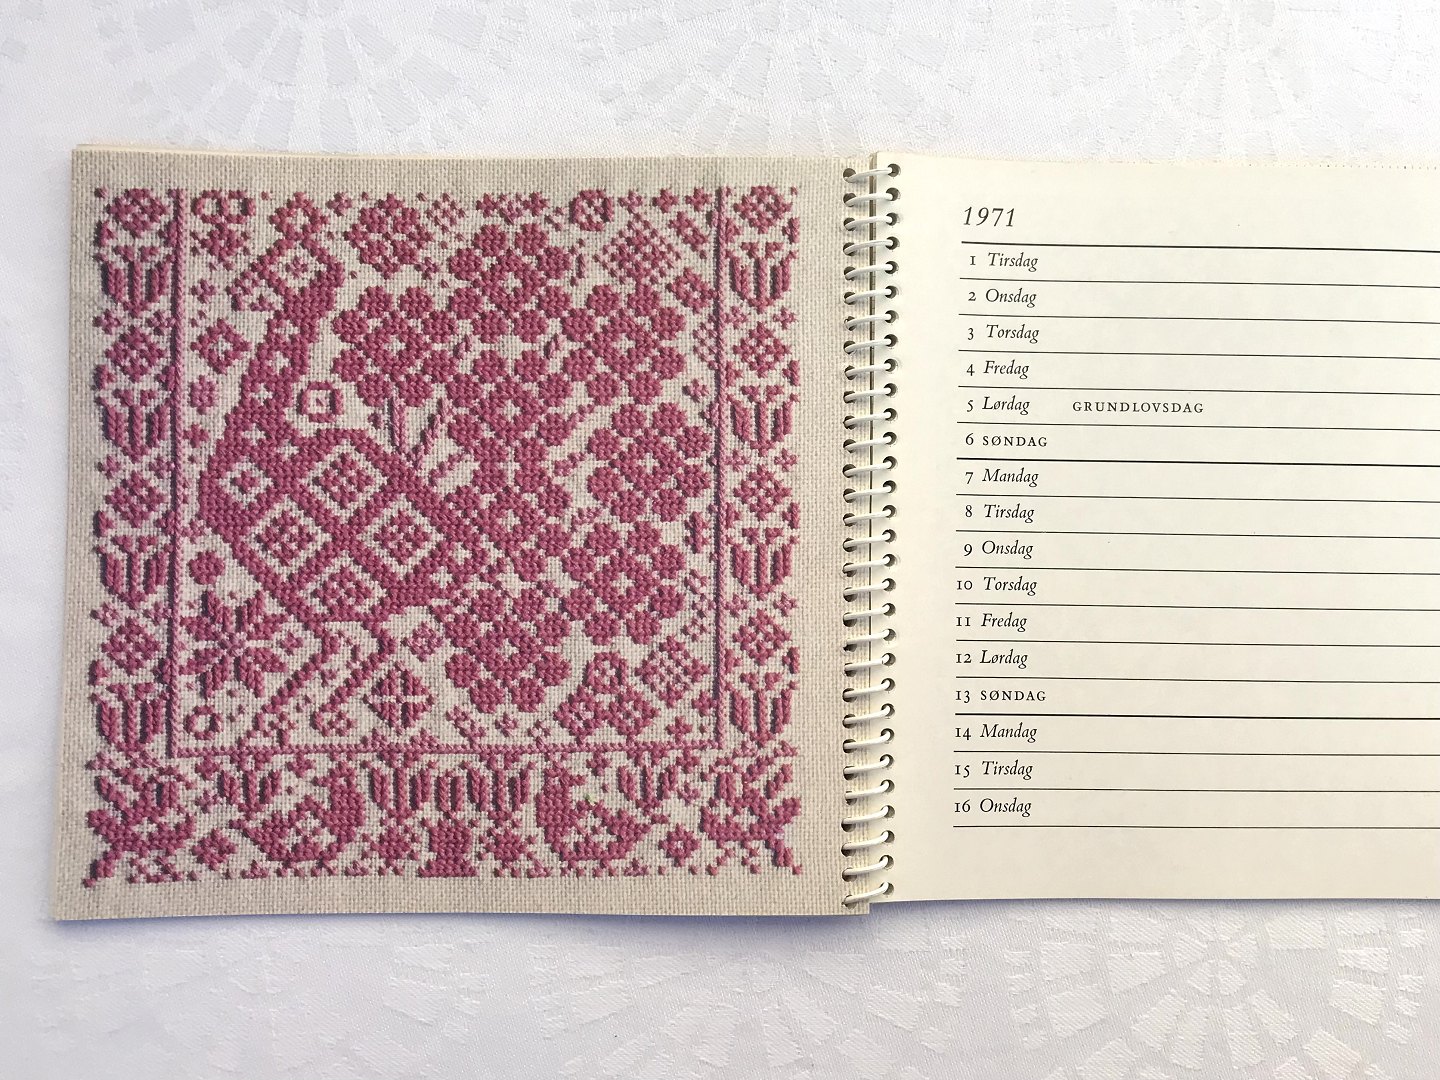 1971
1 Tirsdag
2 Onsdag
3 Torsdag
4 Fredag
5 Lørdag GRUNDLOVSDAG
6 SØNDAG
7 Mandag
8 Tirsdag
9 Onsdag
10 Torsdag
11 Fredag
12 Lørdag
13 SØNDAG
14 Mandag
15 Tirsdag
16 Onsdag